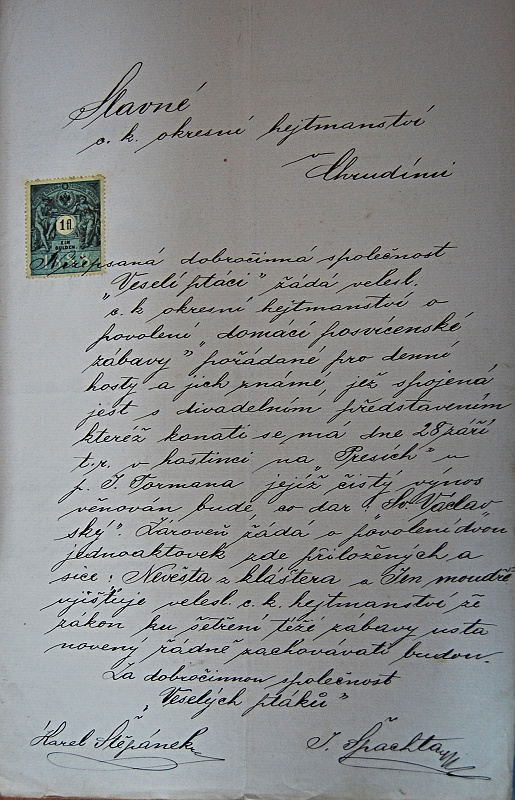 Slavné
c. k. okresní hejtmanství
v
Chrudimi
1 fl
EIN
GULDEN
Nížepsaná dobročinná společnost
„Veselí ptáci" žádá velesl.
c. k okresní hejtmanství o
povolení „domácí posvícenské
zábavy" pořádané pro denní
hosty a jich známé, jež spojená
jest s divadelním představením
kteréž konati se má dne 28 září
t. r. v hostinci na „Presích" u
p. J. Formana jejíž čistý výnos
věnován bude, co dar „Sv. Václav
ský". Zároveň žádá o povolení dvou
jednoaktovek zde přiložených, a
sice: Nevěsta z kláštera a Jen moudře
ujišťuje velesl. c. k. hejtmanství že
zákon ku šetření též zábavy usta
novený řádně zachovávati budou.
Za dobročinnou společnost
„Veselých ptáků"
Karel Štěpánek
J. Špachta